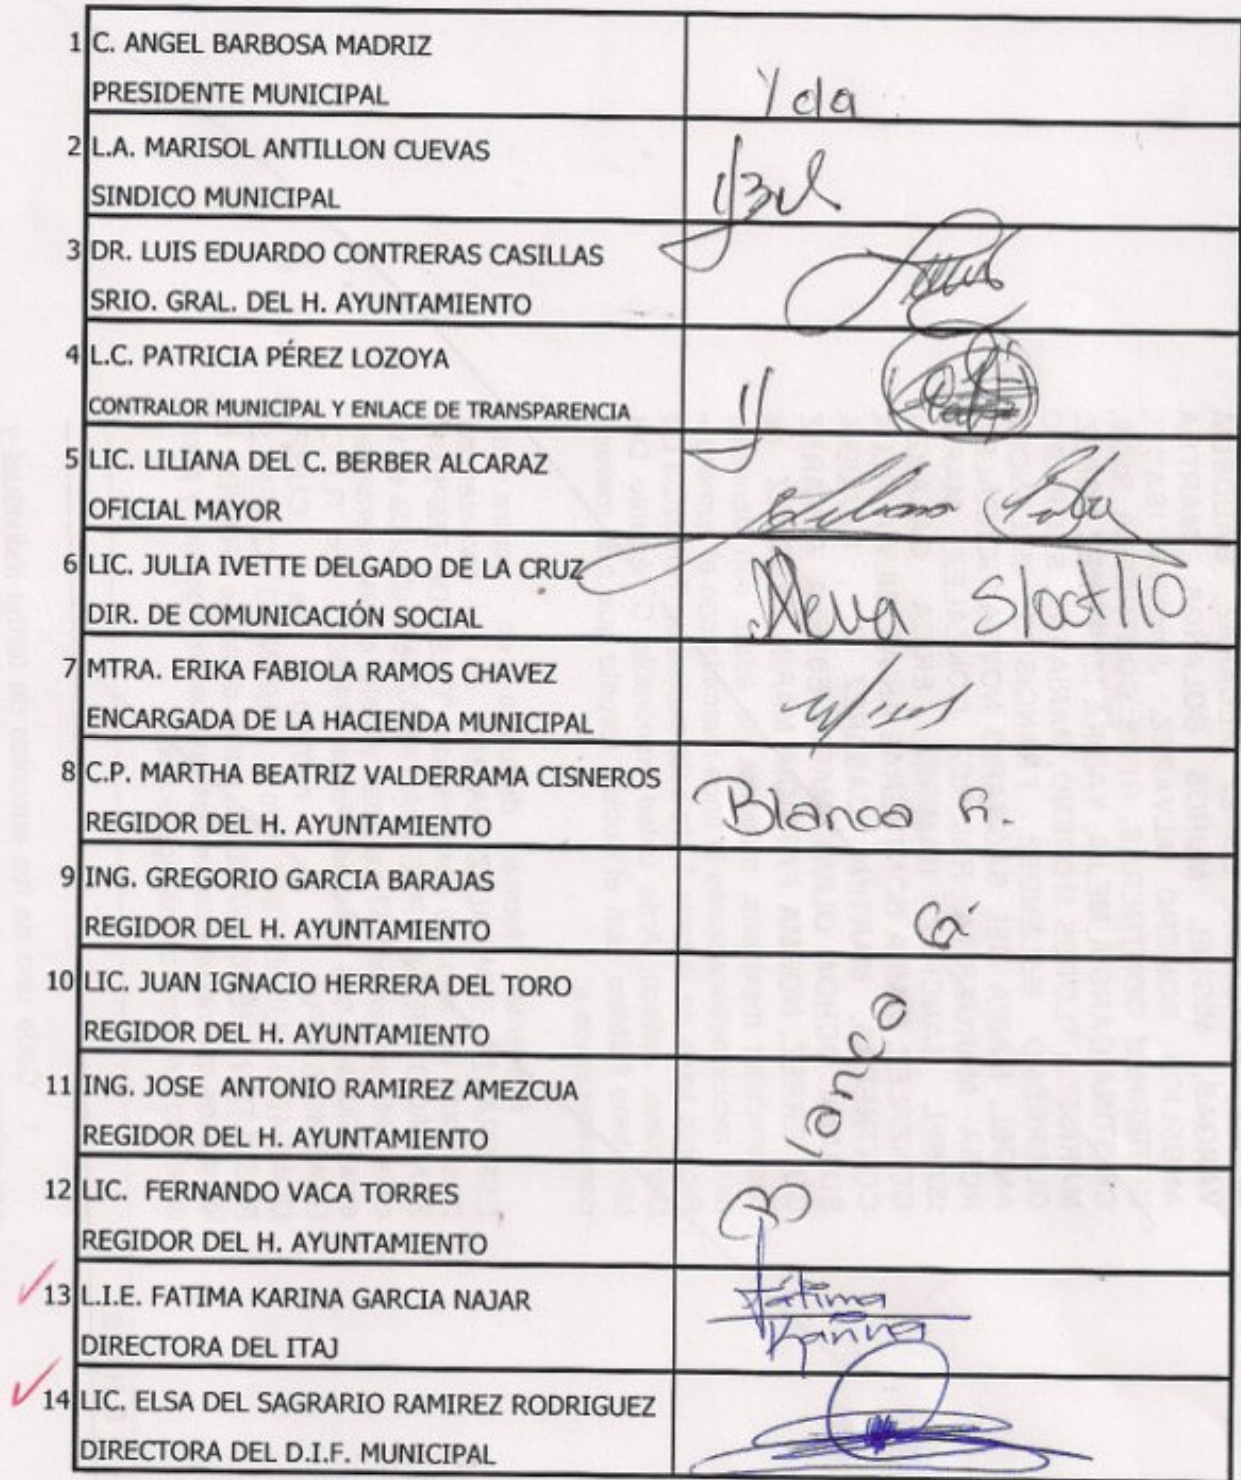 1 C. ANGEL BARBOSA MADRIZ
PRESIDENTE MUNICIPAL
Yda
2 L.A. MARISOL ANTILLON CUEVAS
SINDICO MUNICIPAL
3 DR. LUIS EDUARDO CONTRERAS CASILLAS
SRIO. GRAL. DEL H. AYUNTAMIENTO
4 L.C. PATRICIA PÉREZ LOZOYA
CONTRALOR MUNICIPAL Y ENLACE DE TRANSPARENCIA
5 LIC. LILIANA DEL C. BERBER ALCARAZ
OFICIAL MAYOR
6 LIC. JULIA IVETTE DELGADO DE LA CRUZ
DIR. DE COMUNICACIÓN SOCIAL
5/oct/10
7 MTRA. ERIKA FABIOLA RAMOS CHAVEZ
ENCARGADA DE LA HACIENDA MUNICIPAL
8 C.P. MARTHA BEATRIZ VALDERRAMA CISNEROS
REGIDOR DEL H. AYUNTAMIENTO
Blanca G.
9 ING. GREGORIO GARCIA BARAJAS
REGIDOR DEL H. AYUNTAMIENTO
10 LIC. JUAN IGNACIO HERRERA DEL TORO
REGIDOR DEL H. AYUNTAMIENTO
11 ING. JOSE ANTONIO RAMIREZ AMEZCUA
REGIDOR DEL H. AYUNTAMIENTO
12 LIC. FERNANDO VACA TORRES
REGIDOR DEL H. AYUNTAMIENTO
Blanca G.
13 L.I.E. FATIMA KARINA GARCIA NAJAR
DIRECTORA DEL ITAJ
Fátima
Karina
14 LIC. ELSA DEL SAGRARIO RAMIREZ RODRIGUEZ
DIRECTORA DEL D.I.F. MUNICIPAL